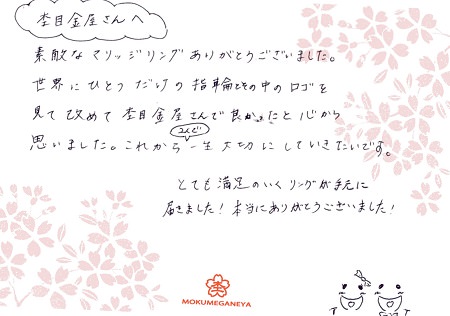 杢目金屋さんへ
素敵なマリッジリングありがとうございました。
世界にひとつだけの指輪とその中のロゴを
見て改めて杢目金屋さんで良かったと心から
思いました。これから二人で一生大切にしていきたいです。
とても満足のいくリングが手元に
届きました！本当にありがとうございました！
MOKUMEGANEYA